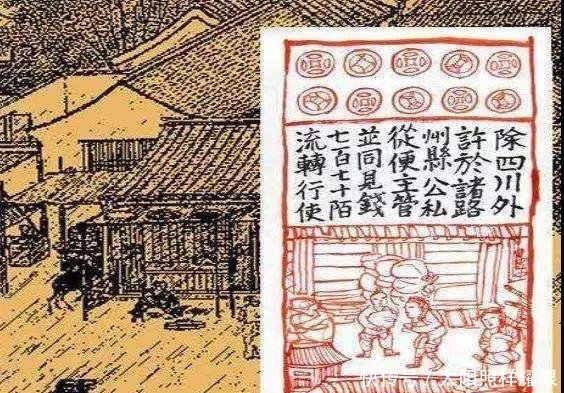 除四川外
許於諸路
州縣公私
從便主管
並同見錢
七百七十陌
流轉行使
快传号 / 太阳照样耀眼